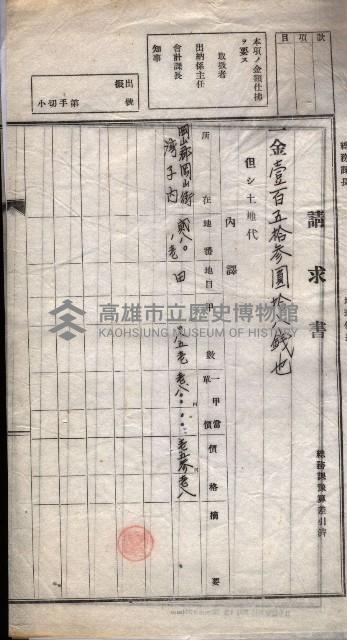 款
項
目
本項ノ金額仕拂
ヲ要ス
取扱者
出納係主任
會計課長
知事
出
振
號
第
小切手
總務課長
請求書
總務課豫算差引濟
一金壹百五拾參圓拾八錢也
但シ土地代
內譯
所在
地番
地目
甲數
一甲當單價
價格
摘要
岡山郡岡山街
灣子內
貳八〇
ノ壱
田
高雄市立歷史博物館
KAOHSIUNG MUSEUM OF HISTORY